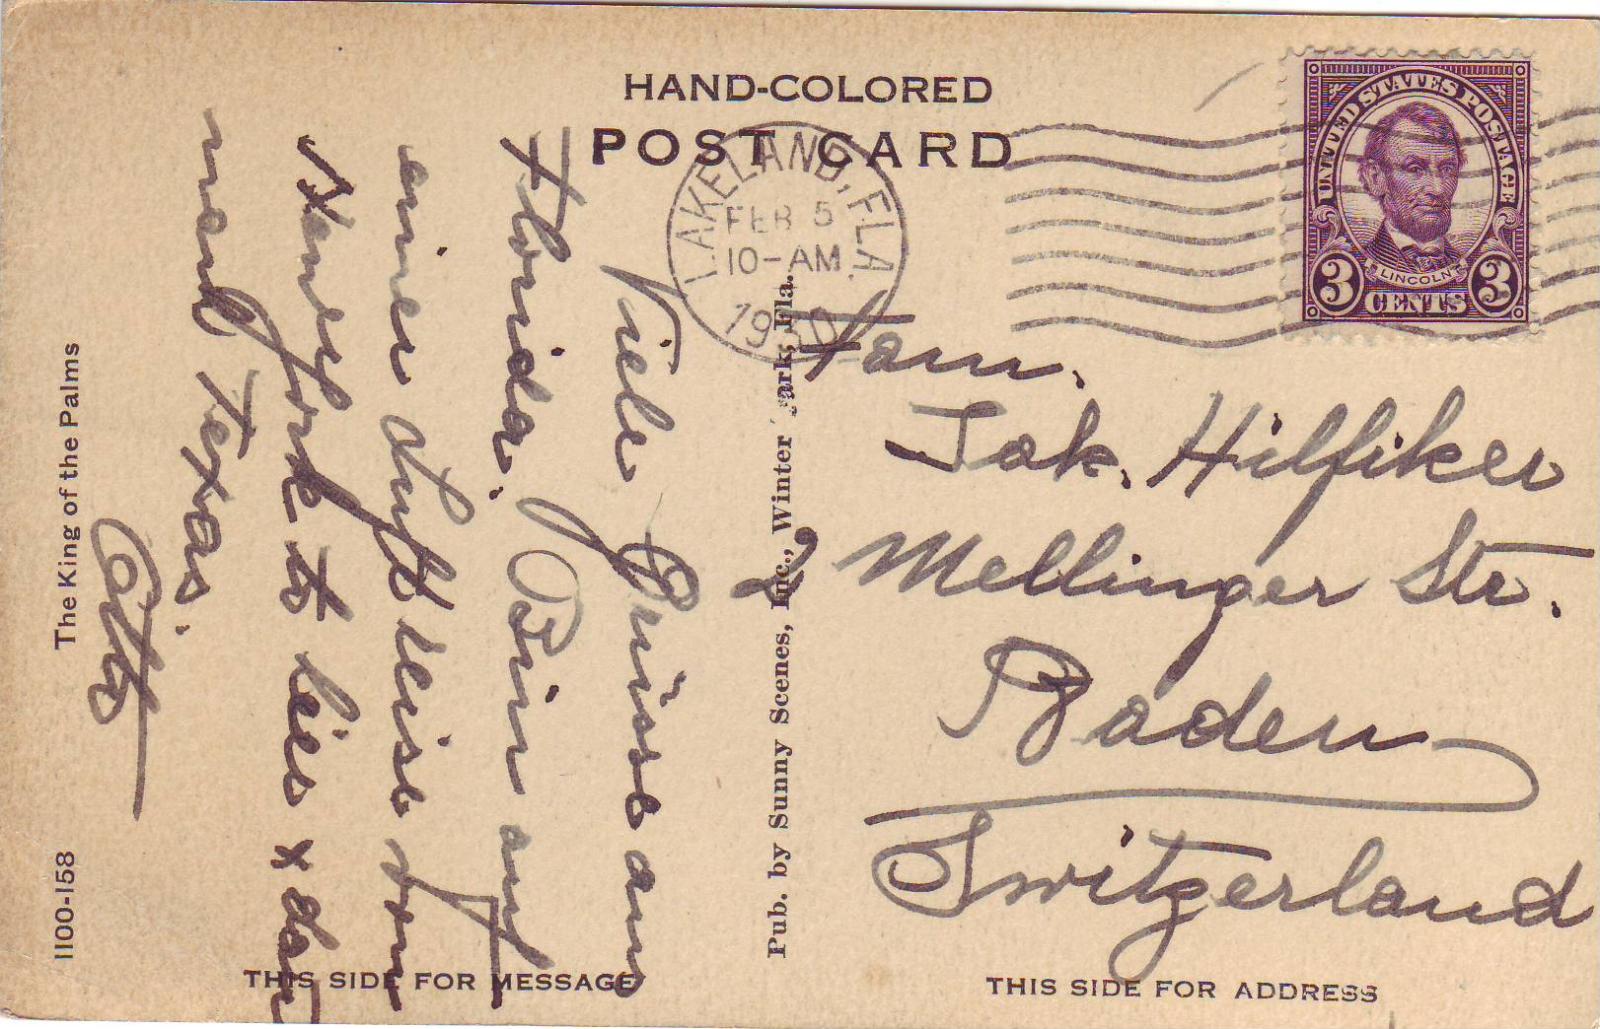 HAND-COLORED
POST CARD
LAKELAND, FLA.
FEB 5
10-AM
UNITED STATES POSTAGE
LINCOLN
3 CENTS 3
Viele Grüsse aus
Florida. Bin auf
einer Luftreise von
Newyork to hier x dan
nach Texas.
Otto
The King of the Palms
1100-158
Pub. by Sunny Scenes, Inc., Winter Park, Fla.
Fam.
Jak. Hilfiker
2 Mellinger Str.
Baden
Switzerland
THIS SIDE FOR MESSAGE
THIS SIDE FOR ADDRESS